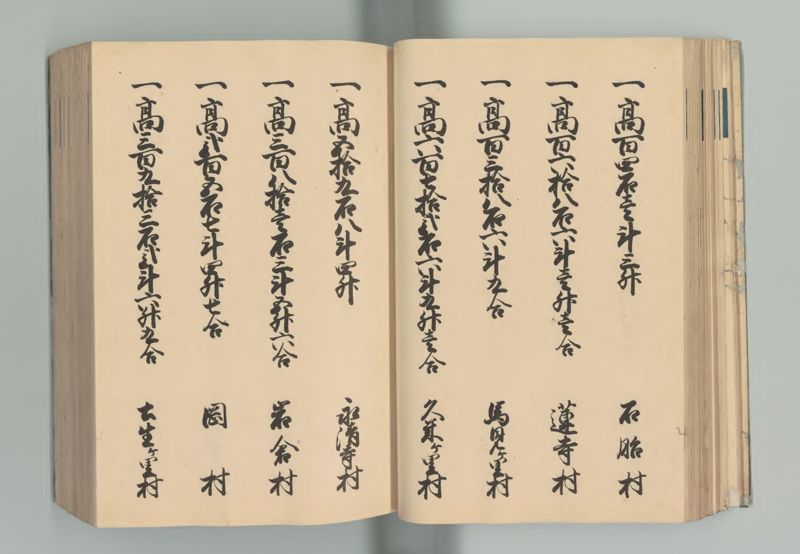 一高百四石壱斗三升 石胎村
一高百六拾八石六斗壱升壱合 蓮寺村
一高百三拾八石六斗九合 馬見ケ里村
一高六百七拾弐石六斗五升壱合 久米ケ里村
一高五拾九石八斗四升 永満寺村
一高三百八拾壱石三斗五升六合 岩倉村
一高弐百五石七斗四升七合 岡村
一高三百九拾三石弐斗六升九合 生ケ里村